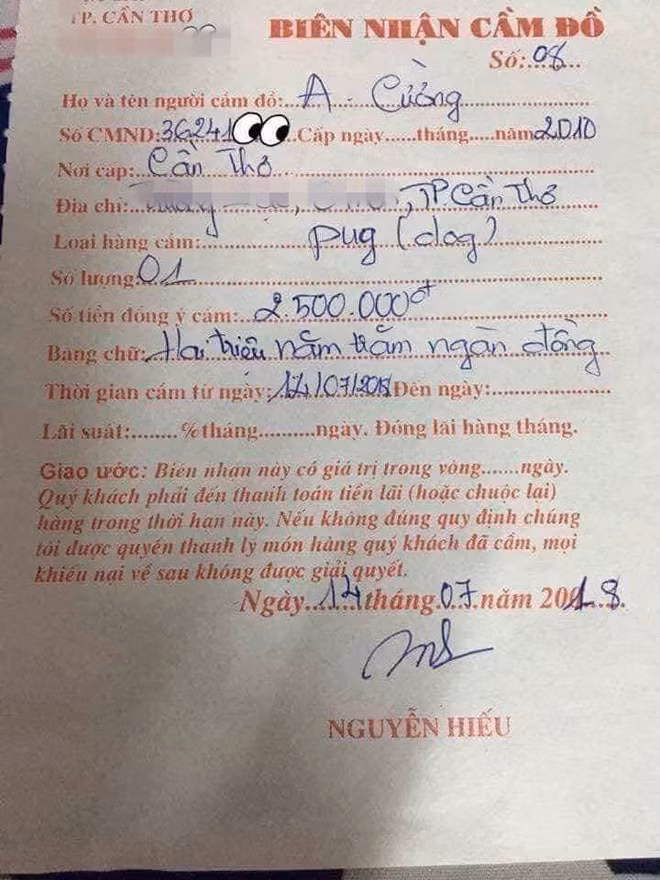 TP. CẦN THƠ
BIÊN NHẬN CẦM ĐỒ
Số:..08...
Họ và tên người cầm đồ:...A - Cường
Số CMND:36241 ...Cấp ngày......tháng.....năm 2010
Nơi cấp: Cần Thơ
Địa chỉ: , TP Cần Thơ
Loại hàng cầm: pug (dog)
Số lượng: 01
Số tiền đồng ý cầm: 2.500.000đ
Bằng chữ: Hai triệu năm trăm ngàn đồng
Thời gian cầm từ ngày: 14/07/2018 Đến ngày:...................
Lãi suất:........%tháng..........ngày. Đóng lãi hàng tháng.
Giao ước: Biên nhận này có giá trị trong vòng.......ngày.
Quý khách phải đến thanh toán tiền lãi (hoặc chuộc lại)
hàng trong thời hạn này. Nếu không đúng quy định chúng
tôi được quyền thanh lý món hàng quý khách đã cầm, mọi
khiếu nại về sau không được giải quyết.
Ngày...14...tháng.07.năm 2018.
NGUYỄN HIẾU